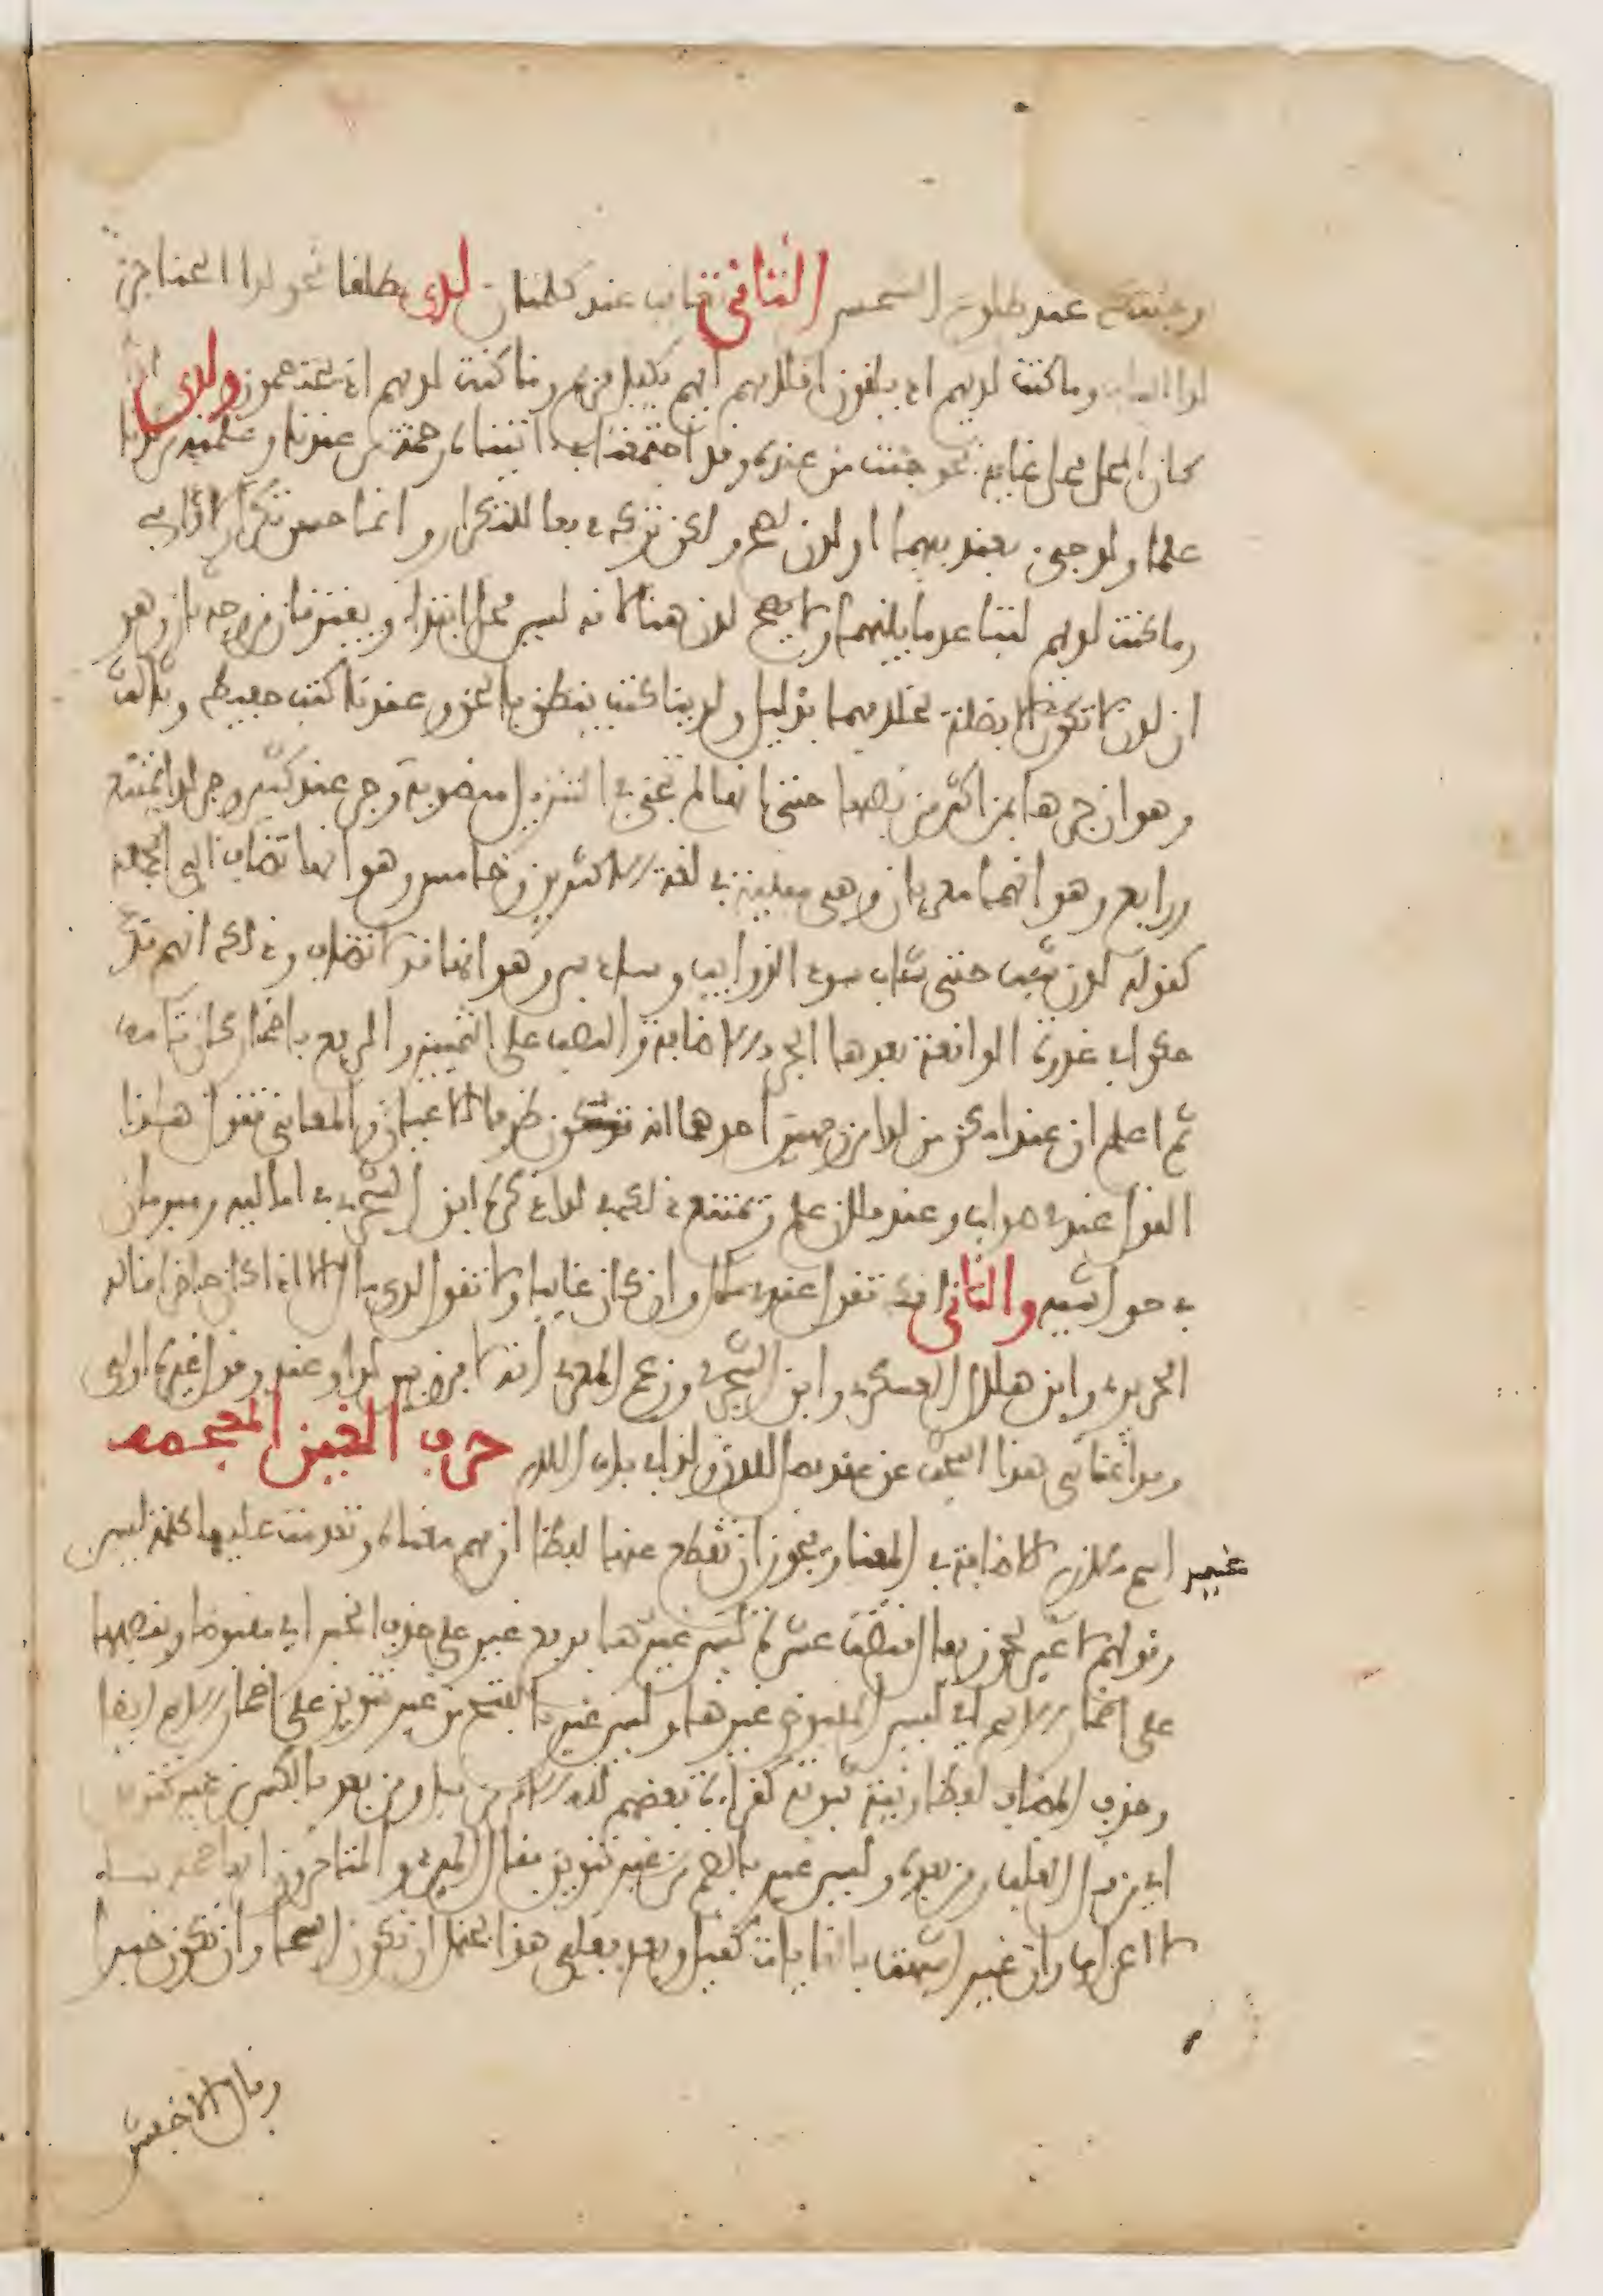 وجئتك عند طلوع الشمس الثاني تعاقب عند كلمتان لدى مطلقا نحو لدا الحناجر
لدا الباب وما كنت لديهم اذ يلقون اقلامهم ايهم يكفل مريم وما كنت لديهم اذ يختصمون ولدن اذا
كان المحل محل غاية نحو جئت من عنده وقد اجتمعتا في اتيناه رحمة من عندنا وعلمناه من لدنا
علما ولو جيء بعند فيهما او لدن لصح ولكن ترك دفعا للتكرار وانما حسن تكرار لدا في
وما كنت لديهم لتباعد ما بينهما ولا يصح لدن هنا لانه ليس محل ابتداء ويفترقان من وجه ثان وهو
ان لدن لا تكون الا فضلة بخلافهما بدليل ولدينا كتب ينطق بالحق وعندنا كتب حفيظ وثالث
وهو ان جرها بمن اكثر من نصبها حتى انها لم تجئ في التنزيل منصوبة وجر عند كثير وجر لدا ممتنع
ورابع وهو انهما معربان وهي مبنية في لغة الاكثرين وخامس وهو انها تضاف الى الجملة
كقوله لدن شب حتى شاب سود الذوايب وسادس وهو انها قد لا تضاف وذلك انهم قد
حكوا في غدوة الواقعة بعدها الجر بالاضافة والنصب على التمييز والرفع باضمار كان تامة
ثم اعلم ان عند امكن من لدا من وجهين احدهما انه تكون ظرفا للاعيان والمعاني تقول هذا
القول عندي صواب وعند فلان علم وتمتنع ذلك في لدا ذكره ابن الشجري في اماليه ومبرمان
في حواشيه والثاني انك تقول عندي مال وان كان غايبا ولا تقول لدي مال الا اذا كان حاضرا قاله
الحريري وابن هلال العسكري وابن الشجري وزعم المعري انه لا فرق بين لدا وعند وقول غيره اولى
وقد اغناني هذا البحث عن عقد فصل للدن ولدا في باب اللام حرف الغين المعجمه
غير اسم ملازم للاضافة في المعنا ويجوز ان يقطع عنها لفظا ان فهم معناه وتقدمت عليها كلمة ليس
وقولهم لا غير لحن ويقال قبضت عشرة ليس غيرها برفع غير على حذف الخبر اي مقبوضا وبنصبها
على اضمار الاسم اي ليس المقبوض غيرها وليس غير بالفتح من غير تنوين على اضمار الاسم ايضا
وحذف المضاف لفظا ونية ثبوته كقراءة بعضهم لله الامر من قبل ومن بعد بالكسر من غير تنوين
اي من قبل الغلب ومن بعده وليس غير بالضم من غير تنوين فقال المبرد والمتاخرون انها ضمة بناء
لا اعراب وان غير اشبهت بالغايات كقبل وبعد فعلى هذا يحتمل ان تكون اسما وان تكون خبرا
وقال الاخفش